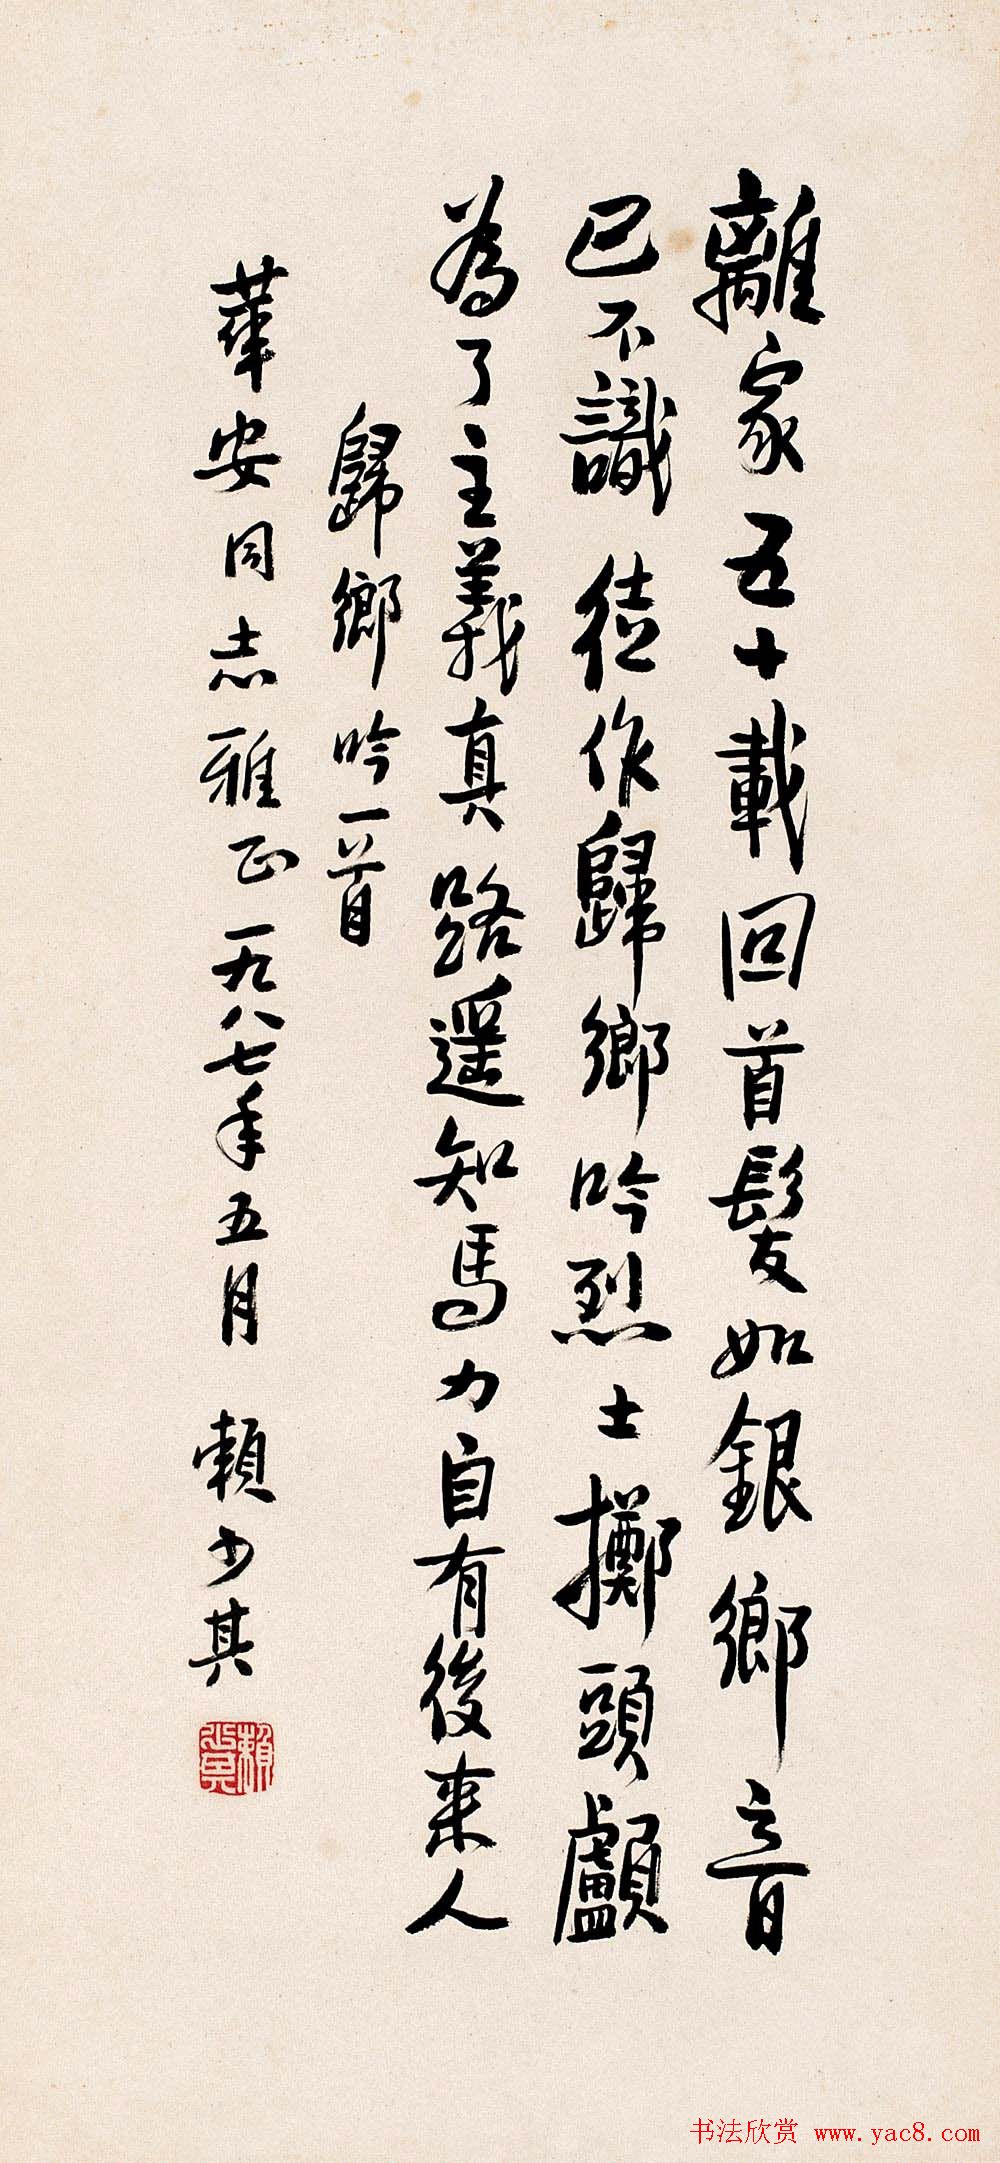 離家五十載回首髮如銀鄉音
已不識徒作歸鄉吟烈士擲頭顱
為了主義真路遥知馬力自有後来人
歸鄉吟一首
華安同志雅正一九八七年五月 賴少其
书法欣赏 www.yac8.com